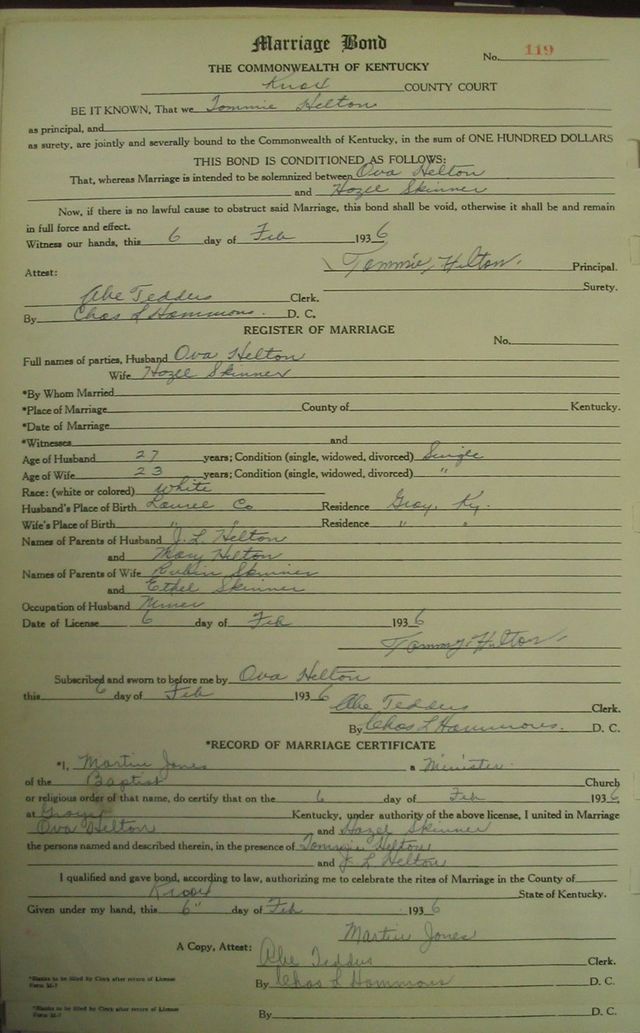 Marriage Bond
No. 119
THE COMMONWEALTH OF KENTUCKY
Knox COUNTY COURT
BE IT KNOWN, That we Tommie Helton
as principal, and
as surety, are jointly and severally bound to the Commonwealth of Kentucky, in the sum of ONE HUNDRED DOLLARS
THIS BOND IS CONDITIONED AS FOLLOWS:
That, whereas Marriage is intended to be solemnized between Ova Helton
and Hazel Skinner
Now, if there is no lawful cause to obstruct said Marriage, this bond shall be void, otherwise it shall be and remain
in full force and effect.
Witness our hands, this 6 day of Feb 1936
Tommie Hilton. Principal.
Attest:
Surety.
Abe Tedders Clerk.
By Chas L Hammons. D. C.
REGISTER OF MARRIAGE
No.
Full names of parties, Husband Ova Helton
Wife Hazel Skinner
*By Whom Married
*Place of Marriage County of Kentucky.
*Date of Marriage
*Witnesses and
Age of Husband 27 years; Condition (single, widowed, divorced) Single
Age of Wife 23 years; Condition (single, widowed, divorced) "
Race: (white or colored) White
Husband's Place of Birth Laurel Co Residence Gray, Ky.
Wife's Place of Birth " " Residence " "
Names of Parents of Husband J. L. Helton
and Mary Hilton
Names of Parents of Wife Rubin Skinner
and Ethel Skinner
Occupation of Husband Miner
Date of License 6 day of Feb 1936
Tommy Hilton
Subscribed and sworn to before me by Ova Helton
this 6 day of Feb 1936
Abe Tedders Clerk.
By Chas L Hammons. D. C.
*RECORD OF MARRIAGE CERTIFICATE
*I, Martin Jones a Minister
of the Baptist Church
or religious order of that name, do certify that on the 6 day of Feb 1936
at Kentucky, under authority of the above license, I united in Marriage
Ova Helton and Hazel Skinner
the persons named and described therein, in the presence of Tommie Helton
and J. L Helton
I qualified and gave bond, according to law, authorizing me to celebrate the rites of Marriage in the County of
Knox State of Kentucky.
Given under my hand, this 6" day of Feb 1936
Martin Jones
A Copy, Attest: Abe Tedders Clerk.
By Chas L Hammons D. C.
*Blanks to be filled by Clerk after return of License
Form M-7
By D. C.
*Blanks to be filled by Clerk after return of License
Form M-7